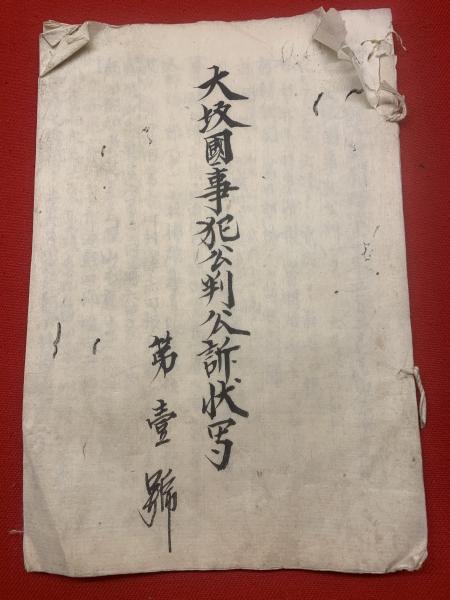 大坂國事犯公判公訴状写
第壹號